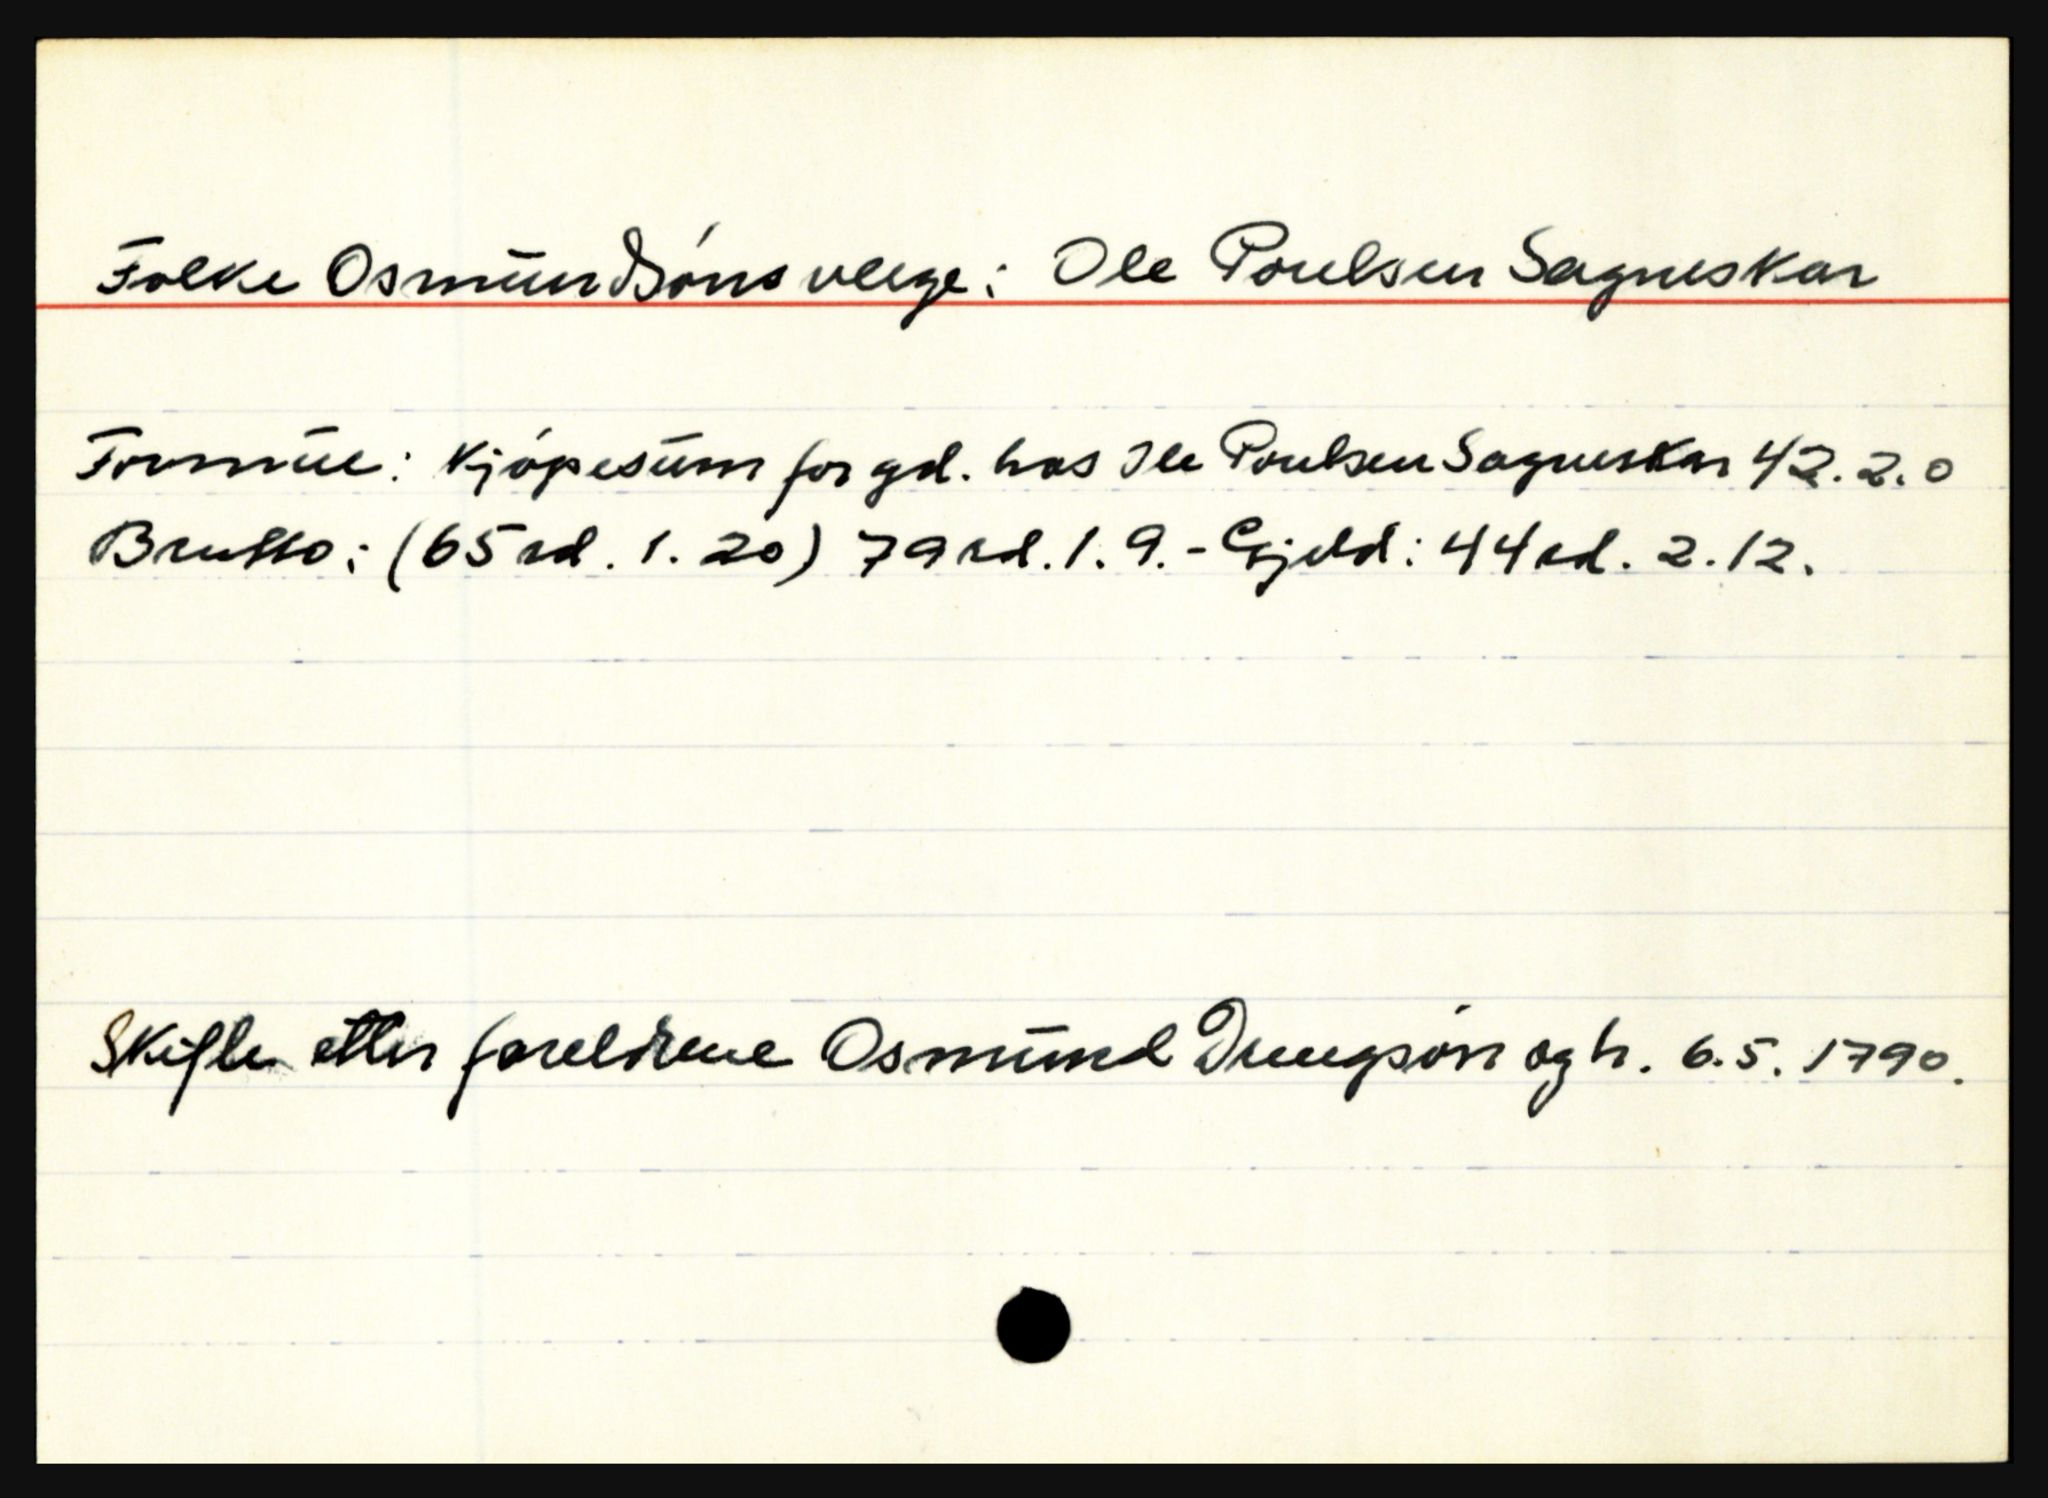 Folke Osmundsøns verge: Ole Poulsen Sagneskar
Formue: Kjøpesum for gd. hos Ole Poulsen Sagneskar 42.2.0
Brutto: (65 rd. 1. 20) 79 rd. 1. 9. - Gjeld: 44 rd. 2. 12.
Skifte etter foreldrene Osmund Drengsøn og h. 6.5. 1790.